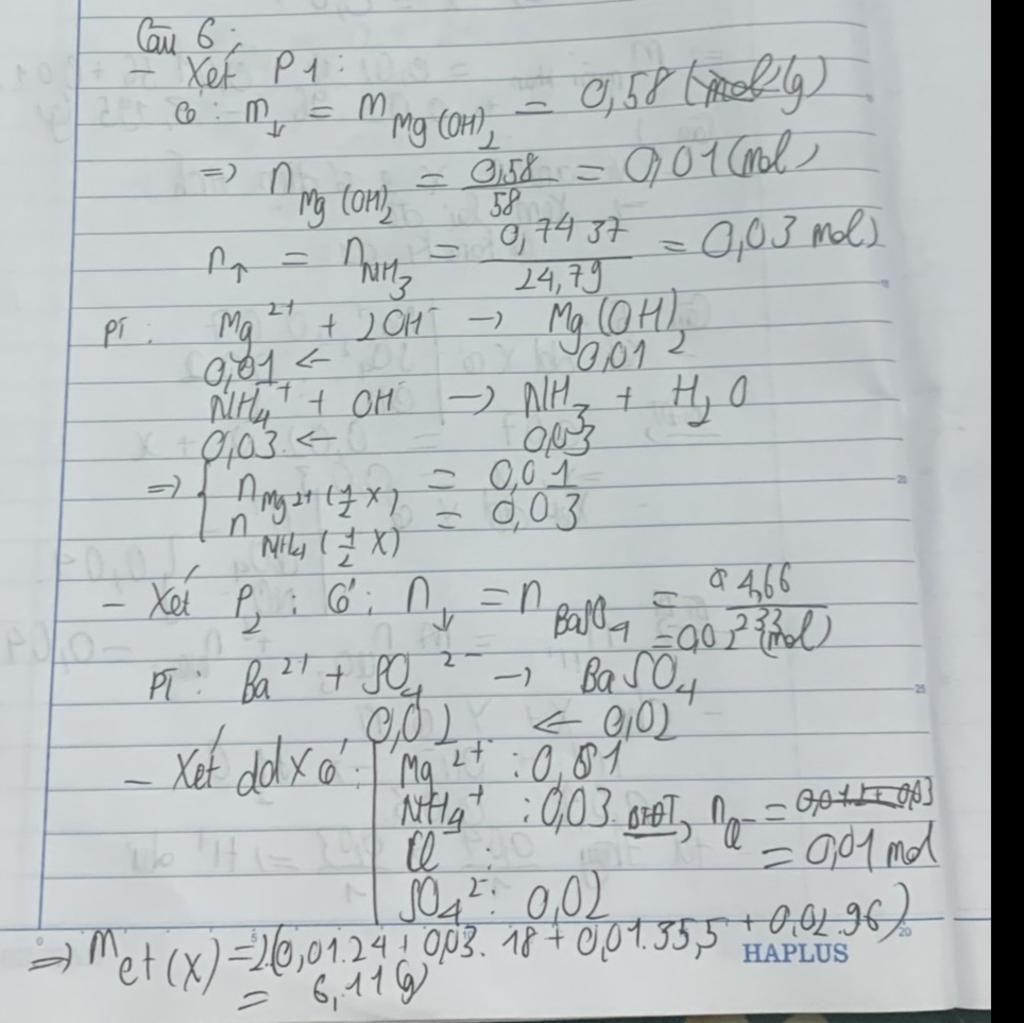 Câu 6:
- Xét P1:
Có: m↓ = m Mg(OH)2 = 0,58 (mol (g)
=> n Mg(OH)2 = 0,58/58 = 0,01 (mol)
n↑ = n NH3 = 0,7437/24,79 = 0,03 mol)
PT: Mg 2+ + 2OH- → Mg(OH)2
0,01 ← 0,01
NH4+ + OH- → NH3 + H2O
0,03 ← 0,03
=> { n Mg2+ (1/2 X) = 0,01
n NH4 (1/2 X) = 0,03
- Xét P2: Có: n↓ = n BaSO4 = 4,66/233 = 0,02 (mol)
PT: Ba 2+ + SO4 2- → BaSO4
0,02 ← 0,02
- Xét dd X có: Mg 2+ : 0,01
NH4+ : 0,03. BTĐT, n Cl- = 0,01.2 + 0,03
Cl- : = 0,01 mol
SO4 2-: 0,02
=> m ct(X) = 2.(0,01.24 + 0,03.18 + 0,01.35,5 + 0,02.96)
= 6,11 g
HAPLUS